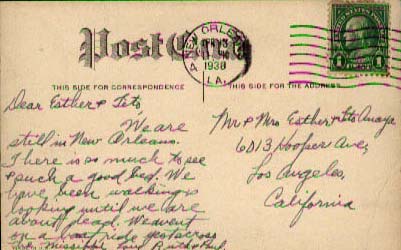 Post Card
NEW ORLEANS
1930
LA.
UNITED STATES POSTAGE
1 1
THIS SIDE FOR CORRESPONDENCE
THIS SIDE FOR THE ADDRESS
Dear Esther & Tito
We are
still in New Orleans.
There is so much to see
& such a good bed. We
have been walking &
looking until we are
about dead. We went
on a boat ride across
the Mississippi
Mr & Mrs Esther & Tito Anaya
6013 Hooper Ave,
Los Angeles,
California